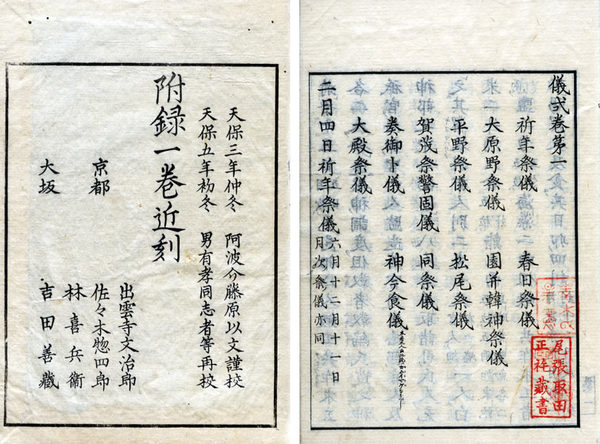 儀式卷第一
祈年祭儀　春日祭儀
大原野祭儀　園并韓神祭儀
平野祭儀　松尾祭儀
賀茂祭警固儀　同祭儀
奏御卜儀　神今食儀
大殿祭儀
二月四日祈年祭儀　六月十二月十一日
月次祭儀亦同
尾張取田
正藏書
天保三年仲冬　阿波介藤原以文謹校
天保五年初冬　男有孝同志者等再校
附録一卷近刻
出雲寺文治郎
京都　佐々木惣四郎
林喜兵衛
大坂　吉田善藏